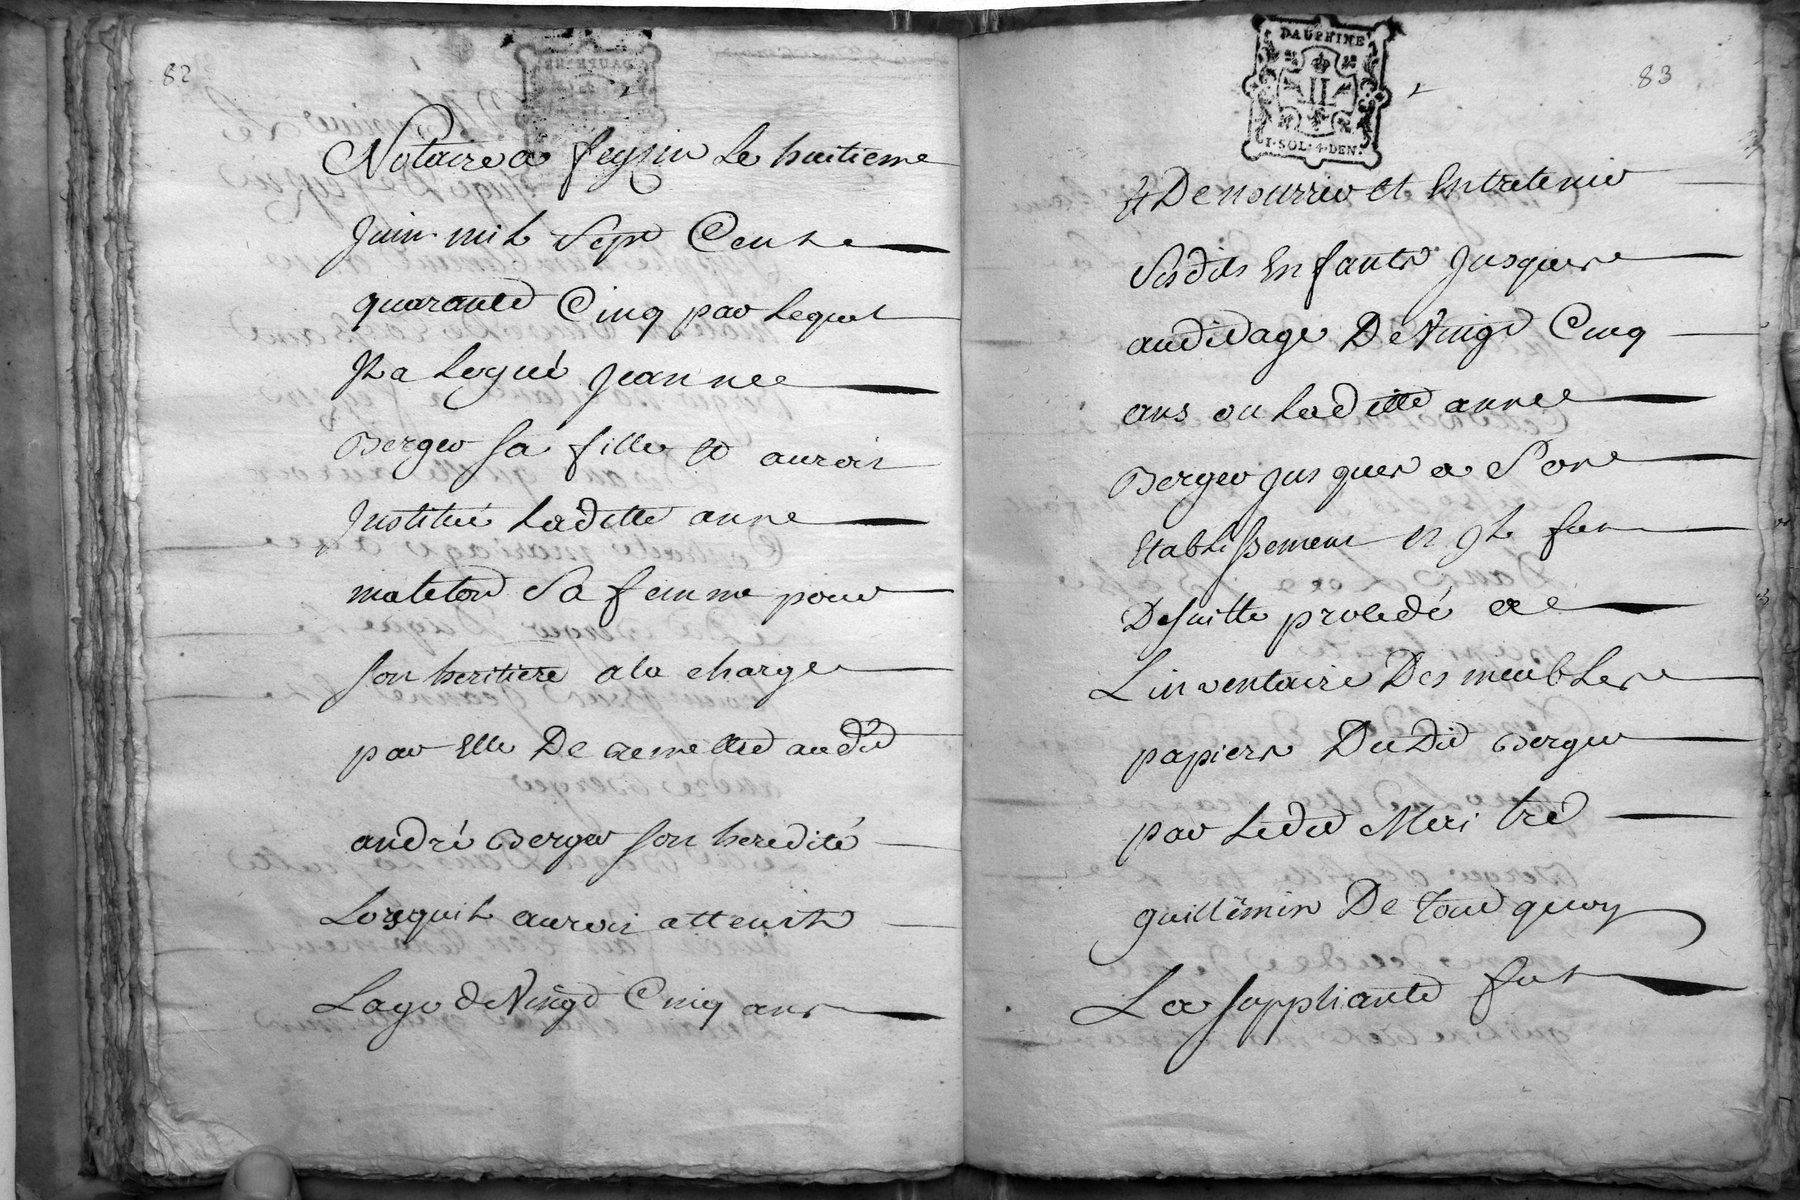 82
Notaire a feyzin Le huitieme
Juin mil Sept Cents
quarante Cinq par Lequel
Il a Legué Jeanne
Berger sa fille et auroit
Institué Laditte anne
mateton Sa femme pour
son heritiere a la charge
par Elle De remettre audit
andré Berger son heredité
Lorsquil auroit atteint
Lage de Vingt Cinq ans
DAUPHINE
II
1·SOL·4·DEN·
83
Et De nourrir et Entretenir
Sesdits Enfants Jusques
audit age De Vingt Cinq
ans ou Laditte anne
Berger jusques a Son
Etablissement Il fut
De suitte procedé a
Linventaire Des meubles
papiers Dudit Berger
par Ledit Me
guillemin De tout quoy
La suppliante fut